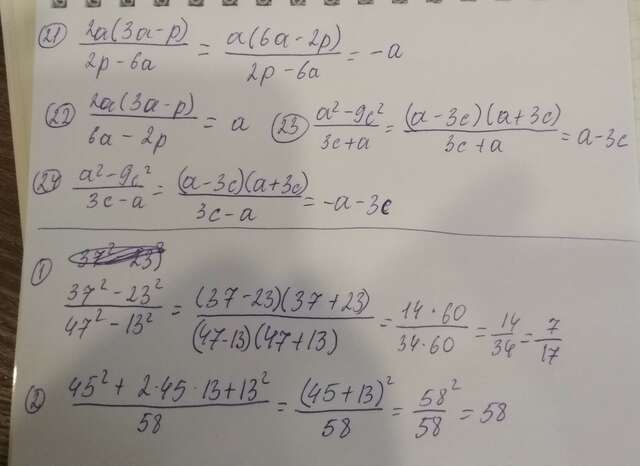 21) 2a(3a-p)/2p-6a = a(6a-2p)/2p-6a = -a
22) 2a(3a-p)/6a-2p = a 23) a²-9c²/3c+a = (a-3c)(a+3c)/3c+a = a-3c
24) a²-9c²/3c-a = (a-3c)(a+3c)/3c-a = -a-3c
1) 37²-23²/47²-13² = (37-23)(37+23)/(47-13)(47+13) = 14·60/34·60 = 14/34 = 7/17
2) 45²+2·45·13+13²/58 = (45+13)²/58 = 58²/58 = 58